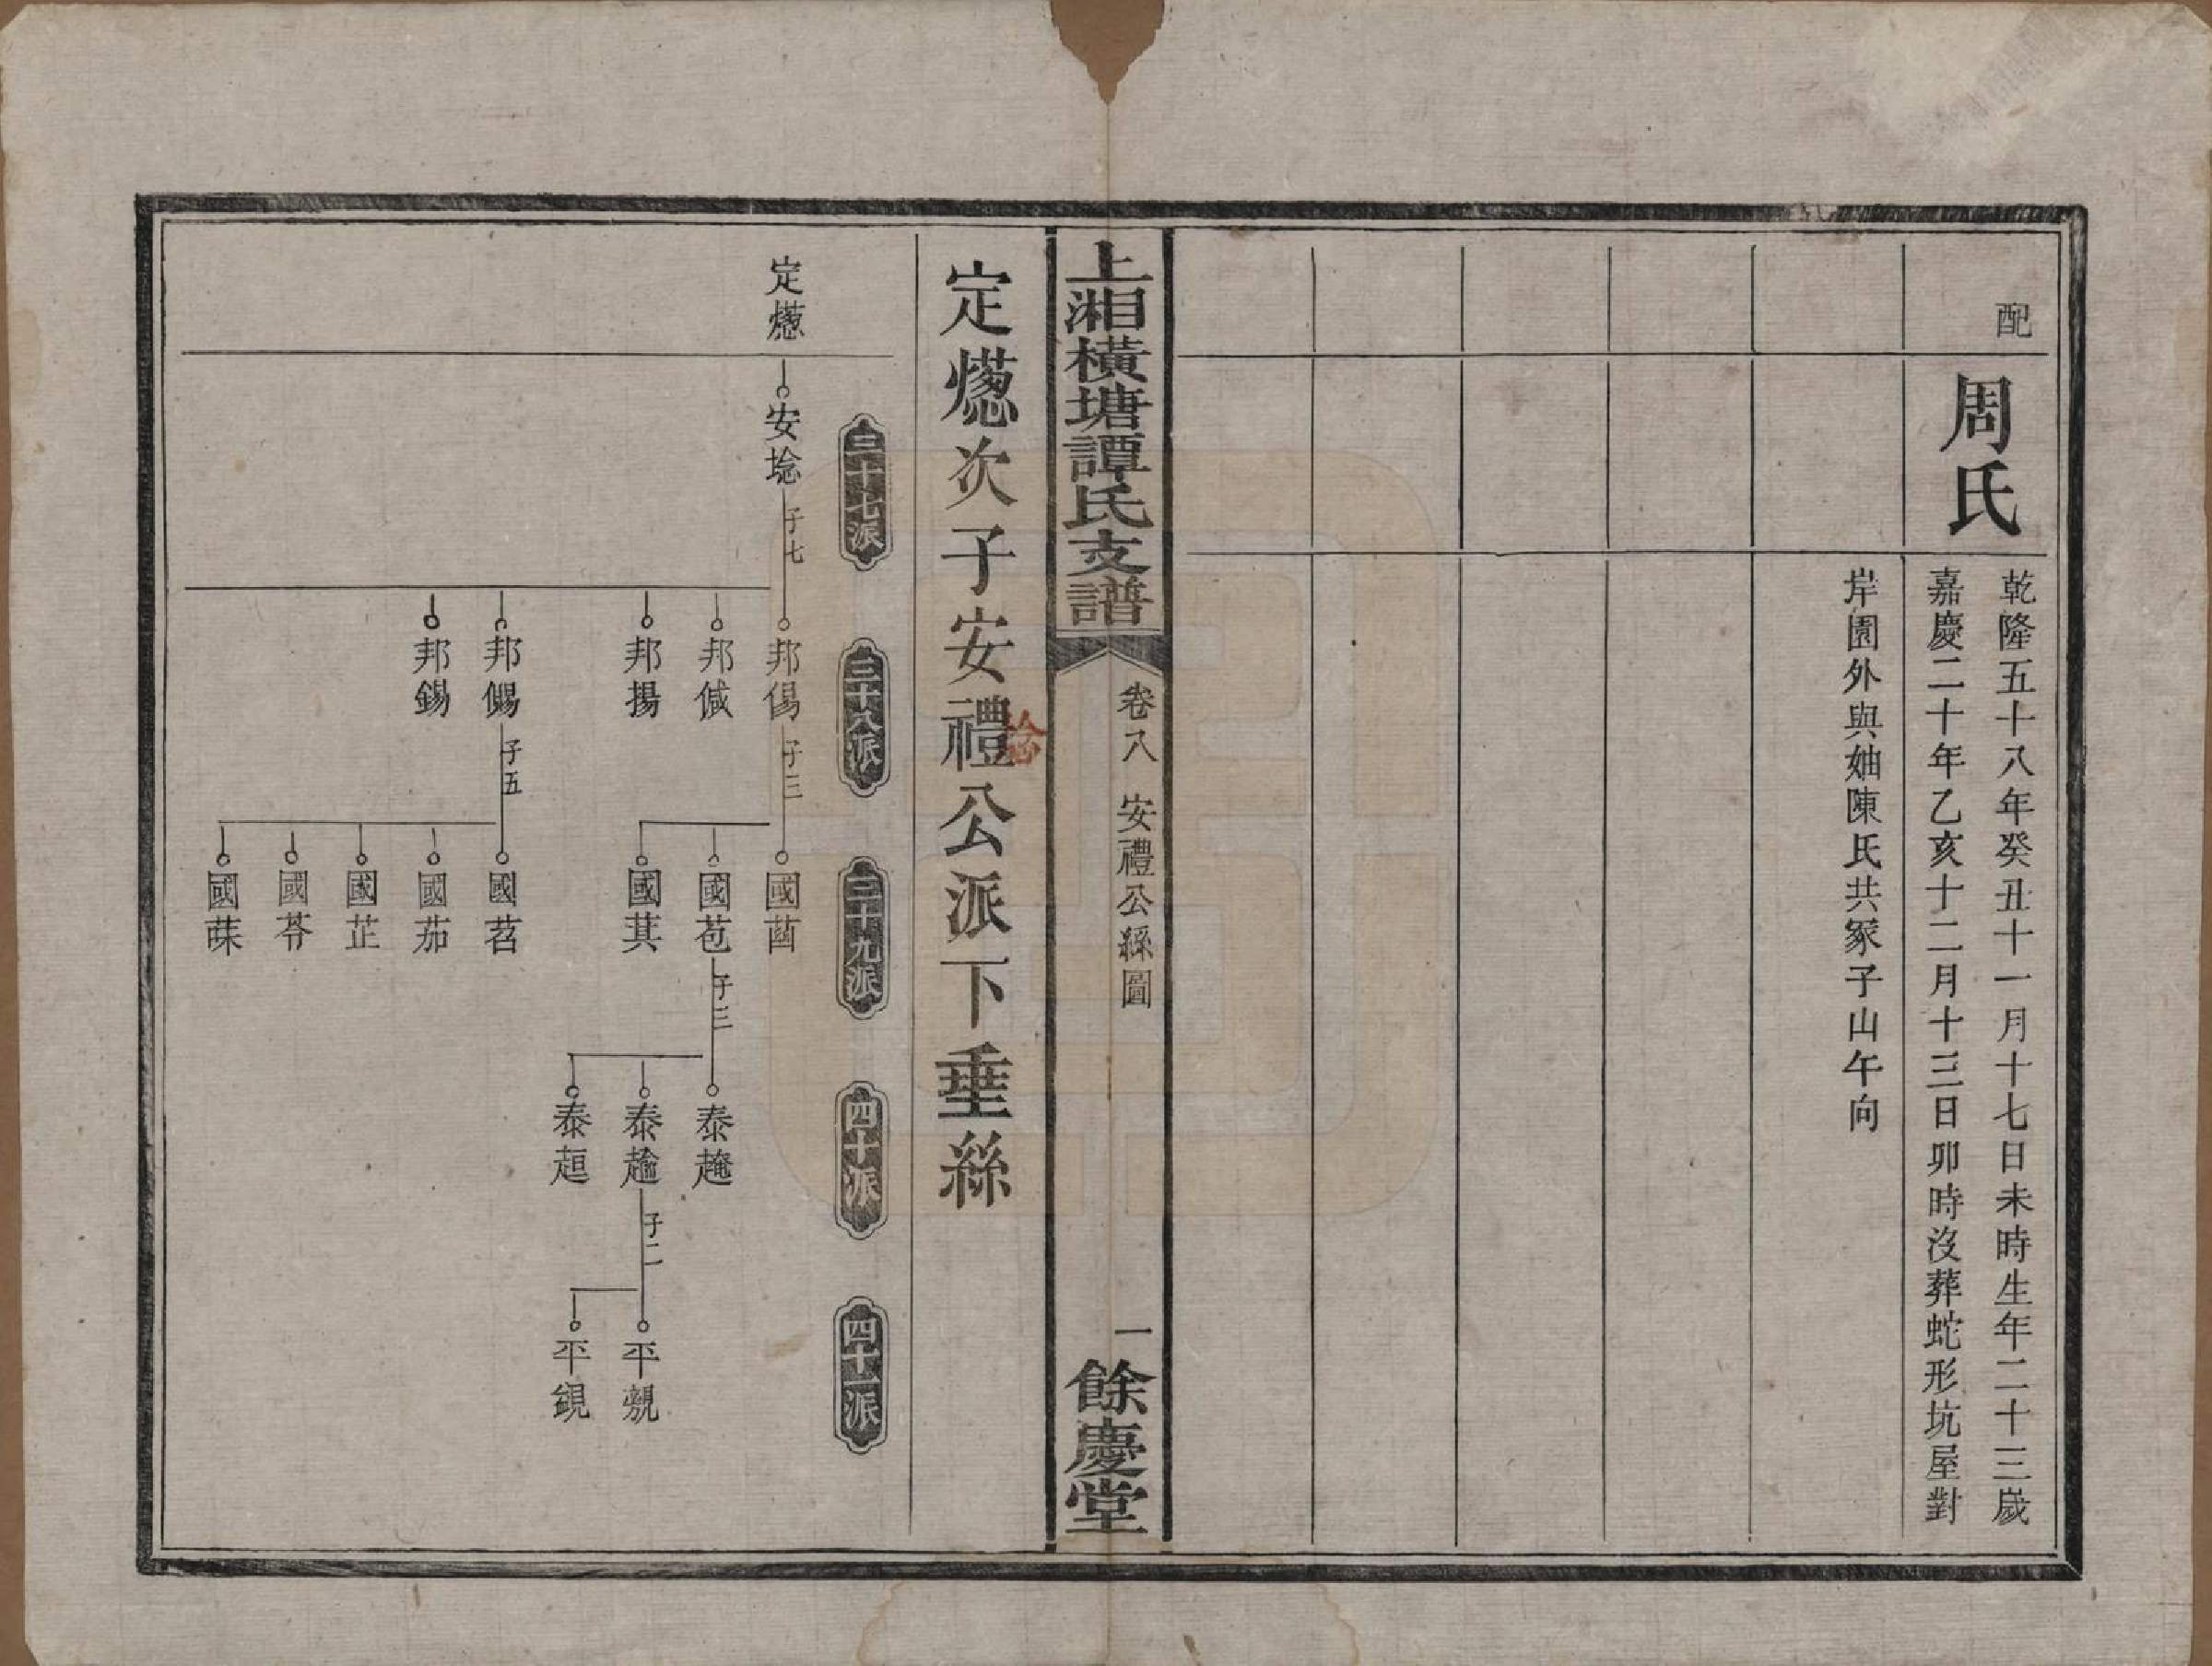 配
周氏
乾隆五十八年癸丑十一月十七日未時生年二十三歲
嘉慶二十年乙亥十二月十三日卯時沒葬蛇形坑屋對
岸園外與妯陳氏共冢子山午向
上湘橫塘譚氏支譜
卷八
安禮公絲圖
一
餘慶堂
定㷓次子安禮公派下垂絲
三十七派
三十八派
三十九派
四十派
四十一派
定㷓
安埝
子七
邦偒
子三
邦傶
邦揚
邦儩
子五
邦錫
國莤
國苞
子三
國萁
國苕
國茄
國芷
國苓
國蒣
泰𧼎
泰䠣
子二
泰䞩
平覣
平覫